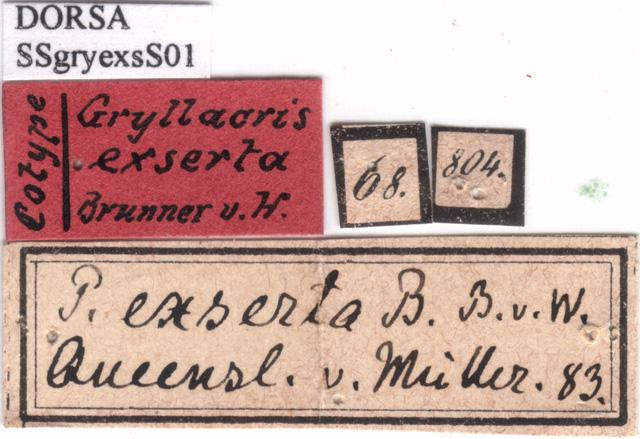 DORSA
SSgryexsS01
Cotype
Gryllacris
exserta
Brunner v. W.
68.
804.
P. exserta B. B. v. W.
Queensl. v. Müller. 83.